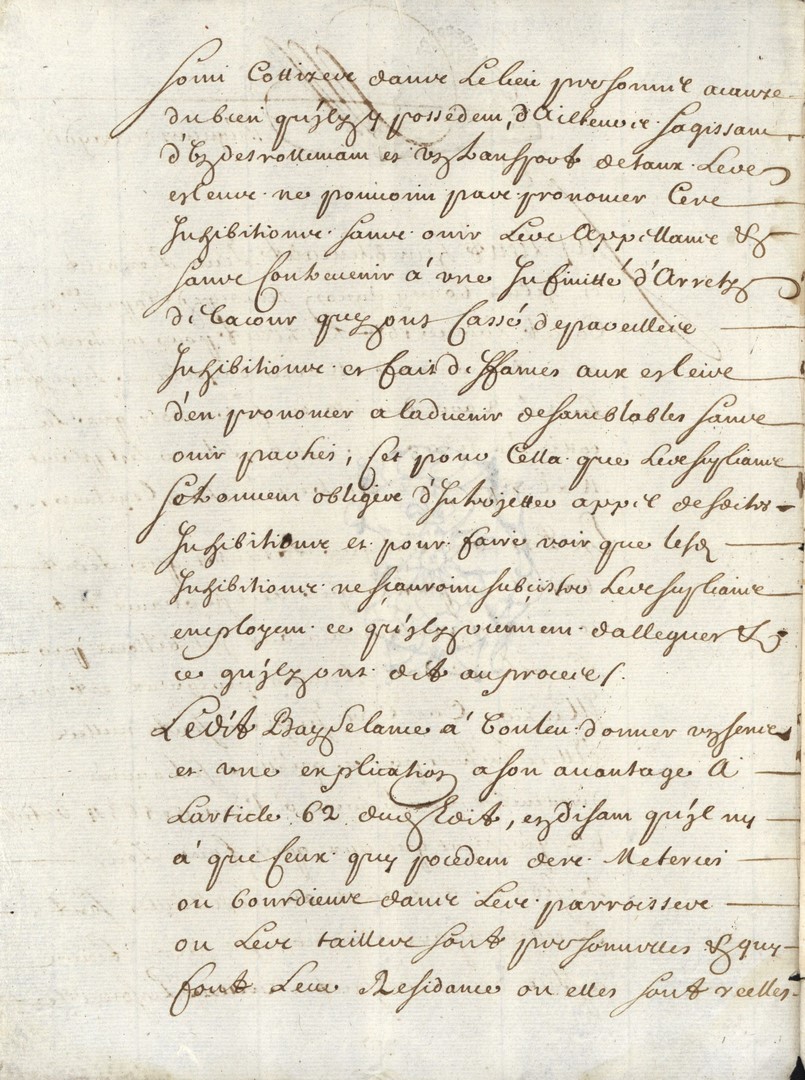 sont Cottizes dans Le lieu personnel a cauze
du bien qu'ylz y possedent, d'Ailleurs sagissant
d'Un desrollement et un transport de taux Les
esleus ne pouvoint pas prononcer Ces
Inhibitions sans ouir Les Appellans &
sans Contrevenir à une Infinitté d'Arretz
de La cour quy ont Cassé de pareilles
Inhibitions et fait deffances aux esleus
d'en prononcer a ladvenir de samblables sans
ouir parties, Cet pour Cella que Les suplians
se trouvent obligés d'Interjetter appel desdites
Inhibitions et pour faire voir que lesd
Inhibitions ne scauroint subcister Les suplians
employent ce qu'ylz viennent dalleguer &
ce qu'ylz ont dit au proces /.
Ledit Bayselance à Voulu donner un sence
et une explication a son avantage A
Larticle 62 dud Edit, en disant qu'yl ny
à que Ceux quy pocedent des Meteries
ou bourdieus dans Les parroisses
ou Les tailles sont personnelles & quy
font Leur Residance ou elles sont reelles